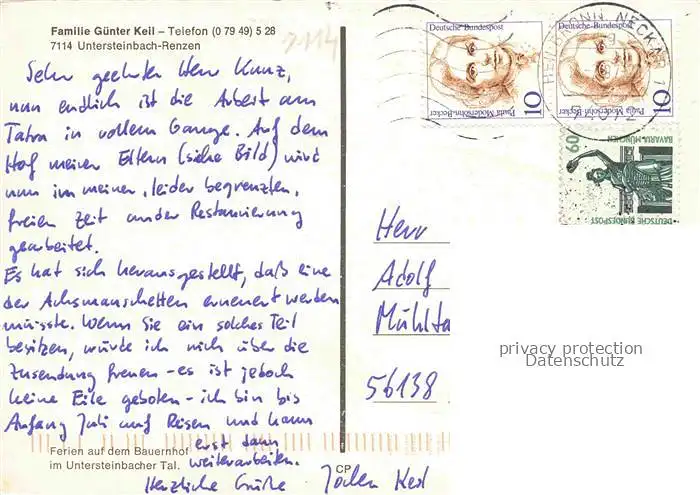 Familie Günter Keil – Telefon (0 79 49) 5 28
7114 Untersteinbach-Renzen
7114
Sehr geehrter Herr Kunz,
nun endlich ist die Arbeit am
Tatra in vollem Gange. Auf dem
Hof meiner Eltern (siehe Bild) wird
nun in meiner, leider begrenzten,
freien Zeit an der Restaurierung
gearbeitet.
Es hat sich herausgestellt, daß eine
der Achsmanschetten erneuert werden
müsste. Wenn Sie ein solches Teil
besitzen, würde ich mich über die
Zusendung freuen - es ist jedoch
keine Eile geboten - ich bin bis
Anfang Juli auf Reisen und kann
erst dann
weiterarbeiten.
Herzliche Grüße Jochen Keil
Ferien auf dem Bauernhof
im Untersteinbacher Tal.
CP
Deutsche Bundespost
Paula Modersohn-Becker
10
Deutsche Bundespost
Paula Modersohn-Becker
10
HEILBRONN, NECKAR 1
60
BAVARIA MÜNCHEN
DEUTSCHE BUNDESPOST
Herr
Adolf
Mühlta
56138
privacy protection
Datenschutz